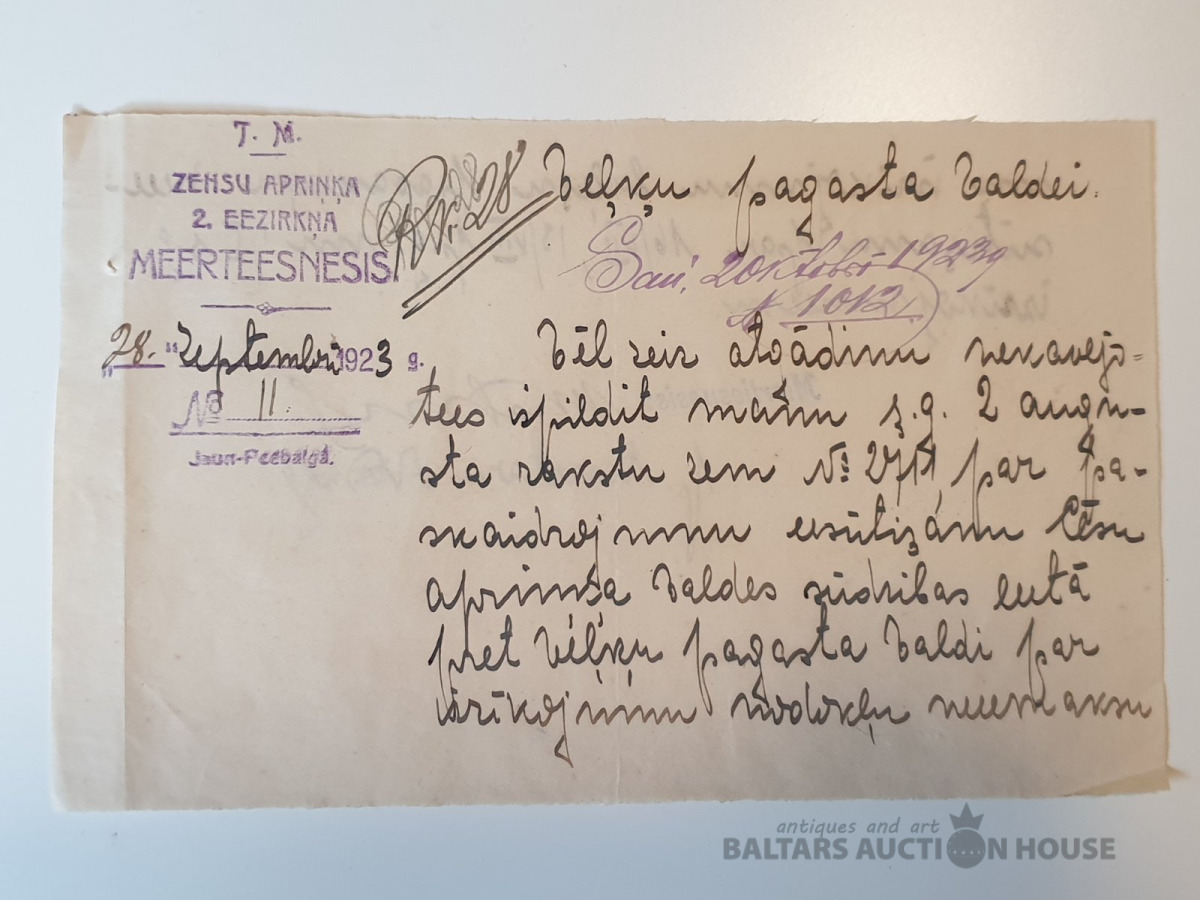 T. M.
ZEHSU APRIŅĶA
2. EEZIRKŅA
MEERTEESNESIS.
28. Septembrī 1923 g.
№ 11.
Jaun-Peebalgā.
Veļķu pagasta Valdei.
Saņ. 2 Oktobrī 1923 g
№ 1012
Vēl reiz atgādinu nekavejo=
tees ispildit manu š.g. 2 augu-
sta rakstu zem № par pa-
skaidrojumu eesūtīšanu Cēsu
apriņķa Valdes sūdzibas leetā
pret Veļķu pagasta Valdi par
izrīkojumu nodokļu neeemaksu
antiques and art
BALTARS AUCTION HOUSE